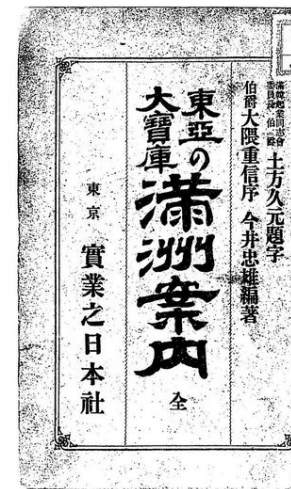 滿韓起業同志會
委員長 伯爵 土方久元題字
伯爵 大隈重信序 今井忠雄編著
東亞の
大寶庫
滿洲案内
全
東京 實業之日本社